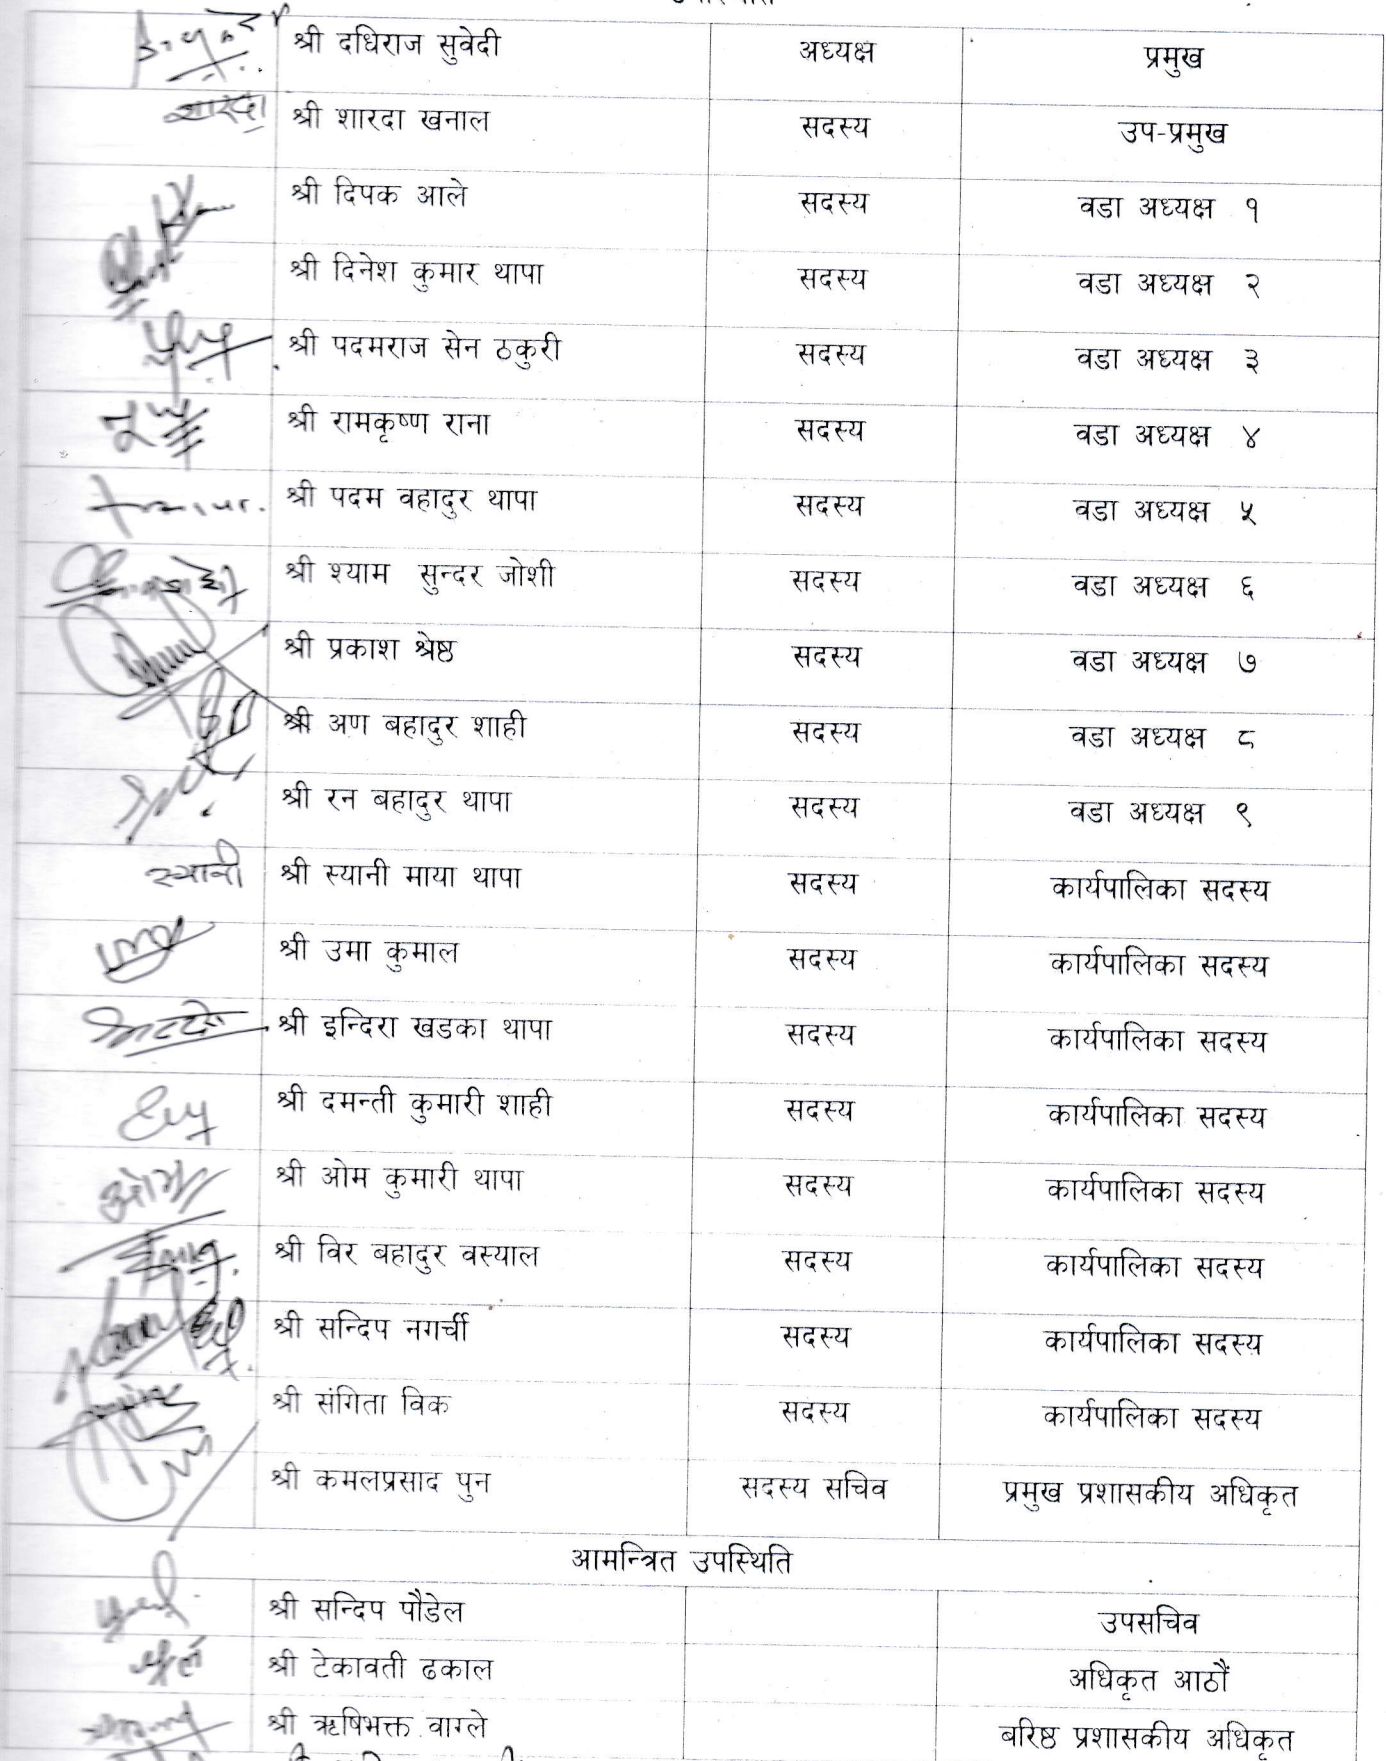 श्री दधिराज सुवेदी अध्यक्ष प्रमुख
शारदा श्री शारदा खनाल सदस्य उप-प्रमुख
श्री दिपक आले सदस्य वडा अध्यक्ष १
श्री दिनेश कुमार थापा सदस्य वडा अध्यक्ष २
श्री पदमराज सेन ठकुरी सदस्य वडा अध्यक्ष ३
श्री रामकृष्ण राना सदस्य वडा अध्यक्ष ४
श्री पदम वहादुर थापा सदस्य वडा अध्यक्ष ५
श्री श्याम सुन्दर जोशी सदस्य वडा अध्यक्ष ६
श्री प्रकाश श्रेष्ठ सदस्य वडा अध्यक्ष ७
श्री अण बहादुर शाही सदस्य वडा अध्यक्ष ८
श्री रन बहादुर थापा सदस्य वडा अध्यक्ष ९
स्यानी श्री स्यानी माया थापा सदस्य कार्यपालिका सदस्य
श्री उमा कुमाल सदस्य कार्यपालिका सदस्य
श्री इन्दिरा खडका थापा सदस्य कार्यपालिका सदस्य
श्री दमन्ती कुमारी शाही सदस्य कार्यपालिका सदस्य
श्री ओम कुमारी थापा सदस्य कार्यपालिका सदस्य
श्री विर बहादुर वस्याल सदस्य कार्यपालिका सदस्य
श्री सन्दिप नगर्ची सदस्य कार्यपालिका सदस्य
श्री संगिता विक सदस्य कार्यपालिका सदस्य
श्री कमलप्रसाद पुन सदस्य सचिव प्रमुख प्रशासकीय अधिकृत
आमन्त्रित उपस्थिति
श्री सन्दिप पौडेल उपसचिव
श्री टेकावती ढकाल अधिकृत आठौं
श्री ऋषिभक्त वाग्ले बरिष्ठ प्रशासकीय अधिकृत